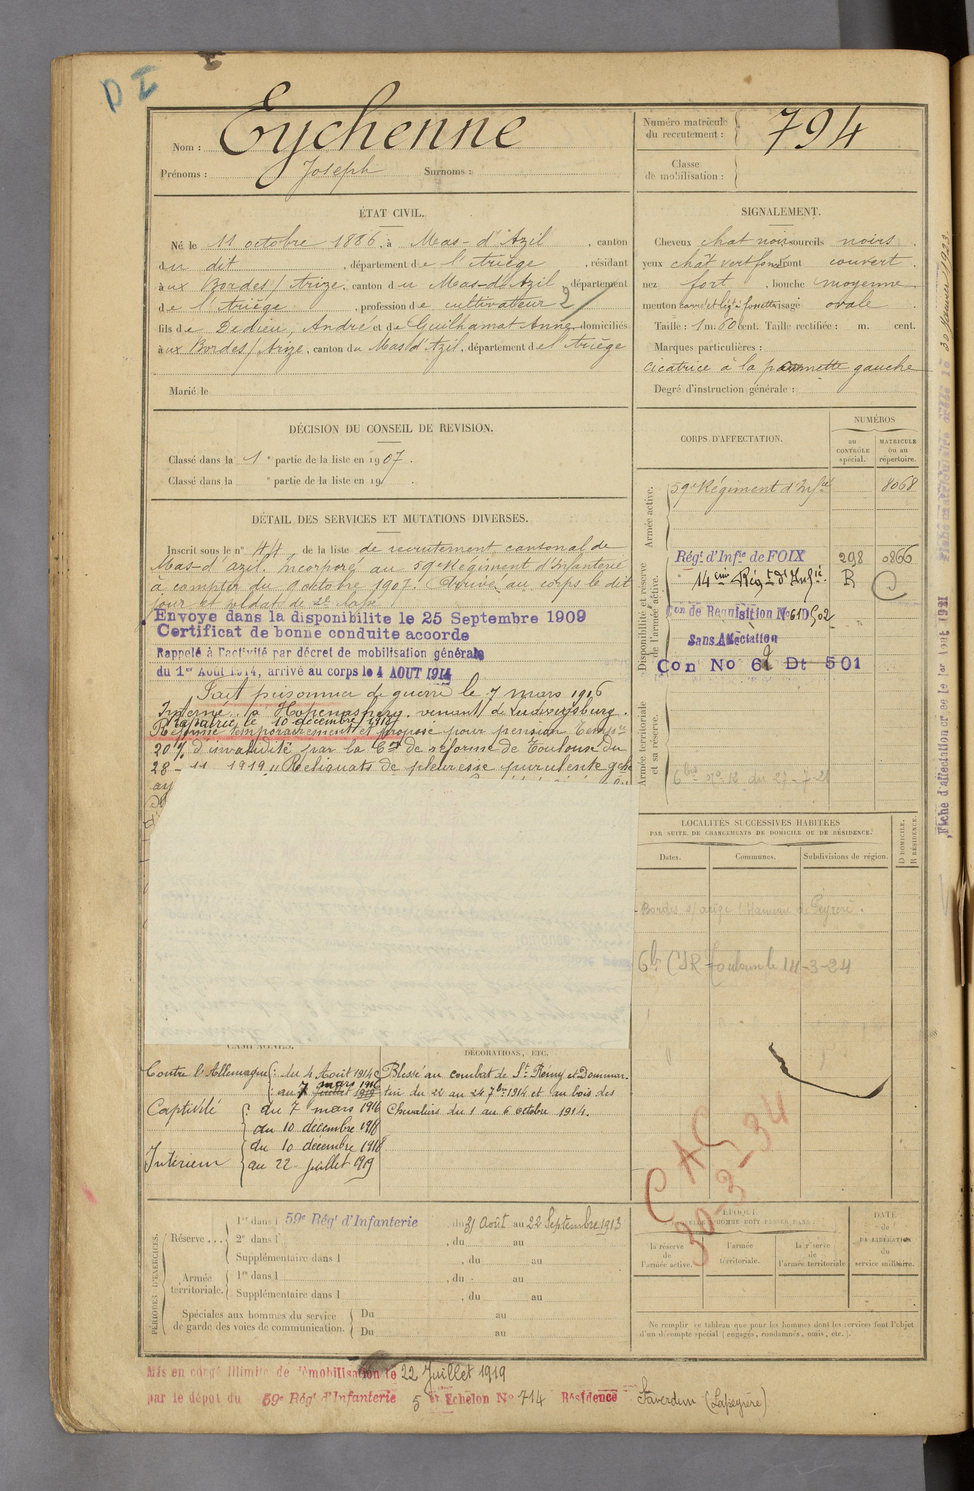 D I
Nom : Eychenne
Prénoms : Joseph Surnoms :
Numéro matricule du recrutement : 794
Classe de mobilisation :
ÉTAT CIVIL.
Né le 11 octobre 1886, à Mas-d'Azil, canton
du dit, département de l'Ariège, résidant
à ux Bordes/Arize, canton du Mas-d'Azil, département
de l'Ariège, profession de cultivateur 2
fils de Dedieu, André et de Guilhamat Anne, domiciliés
à ux Bordes/Arize, canton du Mas d'Azil, département de l'Ariège
Marié le
SIGNALEMENT.
Cheveux chat noir sourcils noirs
yeux chât vert foncé front couvert
nez fort, bouche moyenne
menton visage ovale
Taille : 1 m. 60 cent. Taille rectifiée : m. cent.
Marques particulières :
cicatrice à la pommette gauche
Degré d'instruction générale :
DÉCISION DU CONSEIL DE REVISION.
Classé dans la 1e partie de la liste en 1907.
Classé dans la e partie de la liste en 19
DÉTAIL DES SERVICES ET MUTATIONS DIVERSES.
Inscrit sous le n° 44 de la liste de recrutement cantonal de
Mas-d'Azil. Incorporé au 59e Régiment d'Infanterie
à compter du 9 octobre 1907. Arrivé au corps le dit
jour et soldat de 2e classe.
Envoye dans la disponibilite le 25 Septembre 1909
Certificat de bonne conduite accorde
Rappelé à l'activité par décret de mobilisation générale
du 1er Août 1914, arrivé au corps le 4 AOUT 1914
Fait prisonnier de guerre le 7 mars 1916
Interné venant de Ludwigsburg.
Rapatrié le 10 décembre 1918
Réformé temporairement et proposé pour pension temp.re
20 % d'invalidité par la Con de réforme de Toulouse du
28-11 1919 "Reliquats de pleurésie purulente gche
ay
CORPS D'AFFECTATION.
NUMÉROS
au CONTRÔLE spécial.
MATRICULE ou au répertoire.
Armée active.
59e Régiment d'Infie 8068
Disponibilité et réserve de l'armée active.
Régt d'Infie de FOIX 298 0866
14eme Régt d'Infie. R C
Con de Requisition No 61 D 502
Sans Affectation
Con No 6 Dt 501
Armée territoriale et sa réserve.
LOCALITÉS SUCCESSIVES HABITÉES
PAR SUITE DE CHANGEMENTS DE DOMICILE OU DE RÉSIDENCE.
Dates. Communes. Subdivisions de région.
D DOMICILE. R RÉSIDENCE.
Bordes s/ arize
CSR Toulouse le 14-3-24
CAMPAGNES.
Contre l'Allemagne : du 4 Août 1914
au 7 mars 1916 juillet 1919
Captivité du 7 mars 1916
au 10 décembre 1918
Intérieur du 10 décembre 1918
au 22 juillet 1919
DÉCORATIONS, ETC.
Blessé au combat de St Remy et Dommar-
tin du 22 au 24 7bre 1914 et au bois des
Chevaliers du 1 au 6 octobre 1914.
CAC
30-3-34
PÉRIODES D'EXERCICES.
Réserve ... 1re dans l 59e Régt d'Infanterie, du 31 Août au 22 Septembre 1913
2e dans l , du au
Supplémentaire dans l , du au
Armée territoriale. 1re dans l , du au
Supplémentaire dans l , du au
Spéciales aux hommes du service de garde des voies de communication. Du au
Du au
ÉPOQUE
À LAQUELLE L'HOMME DOIT PASSER DANS :
la réserve de l'armée active.
l'armée territoriale.
la réserve de l'armée territoriale
DATE de la LIBÉRATION du service militaire.
Ne remplir ce tableau que pour les hommes dont les services font l'objet
d'un décompte spécial (engagés, condamnés, omis, etc.).
Mis en congé illimité de démobilisation le 22 Juillet 1919
par le dépôt du 59e Régt d'Infanterie 5e Echelon No 714 Résidence Saverdun (Lapeyrère)
Fiche d'affectation créée le 1er Aout 1921
Fiche matriculaire créée le 30 Janvier 1923